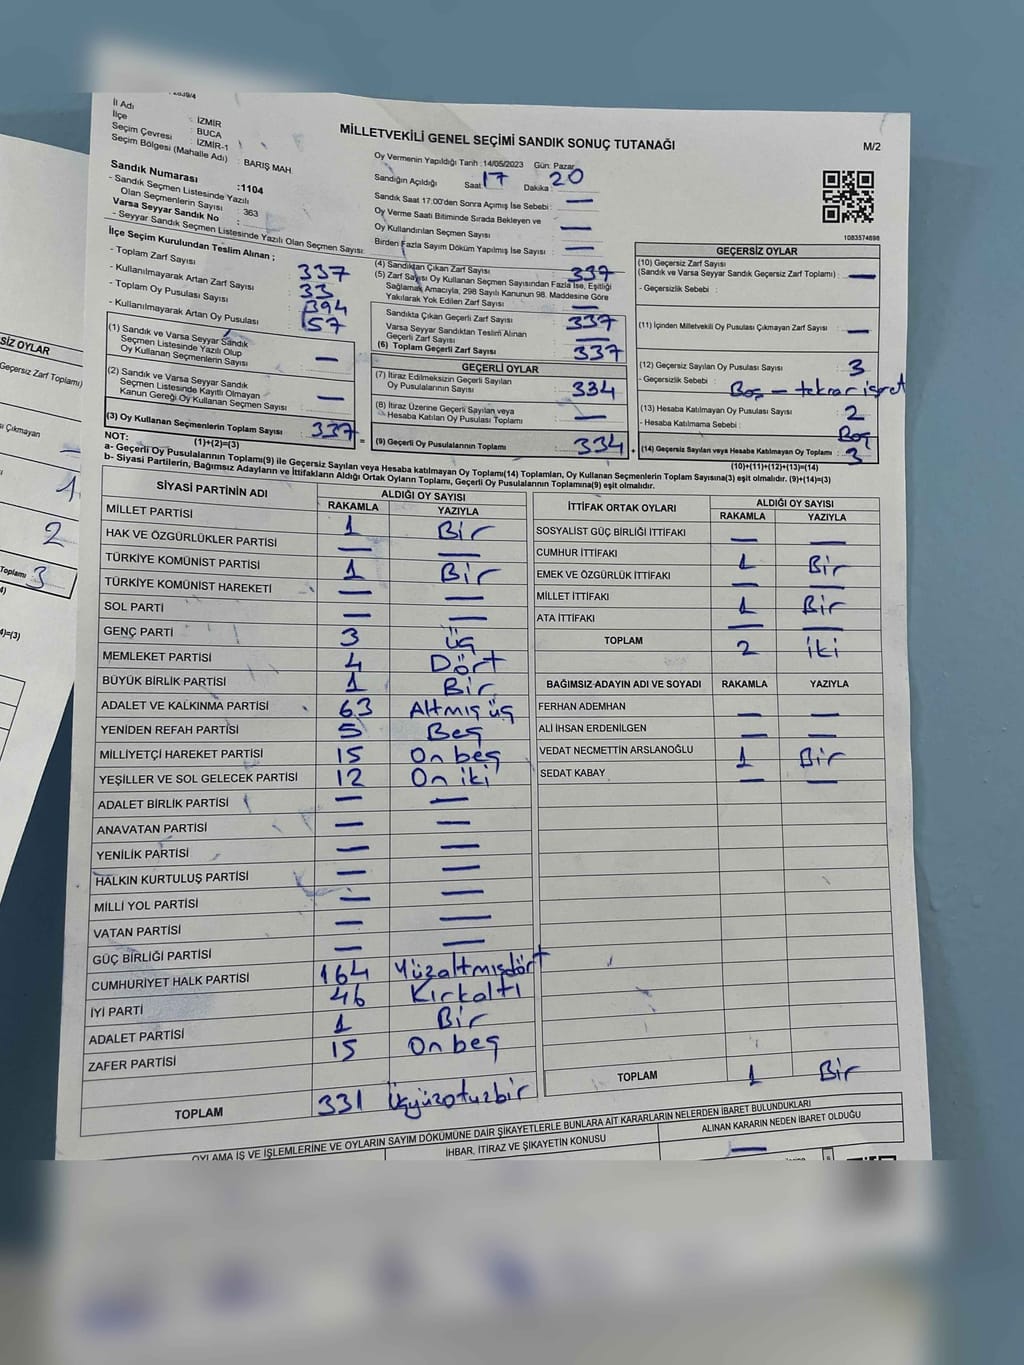 MİLLETVEKİLİ GENEL SEÇİMİ SANDIK SONUÇ TUTANAĞI
M/2
İl Adı : İZMİR
İlçe : BUCA
Seçim Çevresi : İZMİR-1
Seçim Bölgesi (Mahalle Adı) : BARIŞ MAH
Sandık Numarası :1104
- Sandık Seçmen Listesinde Yazılı
Olan Seçmenlerin Sayısı : 363
Varsa Seyyar Sandık No :
- Seyyar Sandık Seçmen Listesinde Yazılı Olan Seçmen Sayısı:
Oy Vermenin Yapıldığı Tarih :14/05/2023 Gün: Pazar
Sandığın Açıldığı Saat 17 Dakika : 20
Sandık Saat 17:00'den Sonra Açımış İse Sebebi: —
Oy Verme Saati Bitiminde Sırada Bekleyen ve
Oy Kullandırılan Seçmen Sayısı —
Birden Fazla Sayım Döküm Yapılmış İse Sayısı : —
1083574898
İlçe Seçim Kurulundan Teslim Alınan ;
- Toplam Zarf Sayısı 337
- Kullanılmayarak Artan Zarf Sayısı 33
- Toplam Oy Pusulası Sayısı 394
- Kullanılmayarak Artan Oy Pusulası 57
(1) Sandık ve Varsa Seyyar Sandık
Seçmen Listesinde Yazılı Olup
Oy Kullanan Seçmenlerin Sayısı : —
(2) Sandık ve Varsa Seyyar Sandık
Seçmen Listesinde Kayıtlı Olmayan
Kanun Gereği Oy Kullanan Seçmen Sayısı : —
(3) Oy Kullanan Seçmenlerin Toplam Sayısı : 337
(1)+(2)=(3)
(4) Sandıktan Çıkan Zarf Sayısı 337
(5) Zarf Sayısı Oy Kullanan Seçmen Sayısından Fazla İse, Eşitliği
Sağlamak Amacıyla, 298 Sayılı Kanunun 98. Maddesine Göre
Yakılarak Yok Edilen Zarf Sayısı : —
Sandıkta Çıkan Geçerli Zarf Sayısı : 337
Varsa Seyyar Sandıktan Teslim Alınan
Geçerli Zarf Sayısı : —
(6) Toplam Geçerli Zarf Sayısı : 337
GEÇERLİ OYLAR
(7) İtiraz Edilmeksizin Geçerli Sayılan
Oy Pusulalarının Sayısı : 334
(8) İtiraz Üzerine Geçerli Sayılan veya
Hesaba Katılan Oy Pusulası Toplamı : —
= (9) Geçerli Oy Pusulalarının Toplamı : 334 +
GEÇERSİZ OYLAR
(10) Geçersiz Zarf Sayısı
(Sandık ve Varsa Seyyar Sandık Geçersiz Zarf Toplamı) : —
- Geçersizlik Sebebi :
(11) İçinden Milletvekili Oy Pusulası Çıkmayan Zarf Sayısı : —
(12) Geçersiz Sayılan Oy Pusulası Sayısı : 3
- Geçersizlik Sebebi : Boş - tekrar işret
(13) Hesaba Katılmayan Oy Pusulası Sayısı : 2
- Hesaba Katılmama Sebebi : Boş
(14) Geçersiz Sayılan veya Hesaba Katılmayan Oy Toplamı : 3
(10)+(11)+(12)+(13)=(14)
NOT:
a- Geçerli Oy Pusulalarının Toplamı(9) ile Geçersiz Sayılan veya Hesaba katılmayan Oy Toplamı(14) Toplamları, Oy Kullanan Seçmenlerin Toplam Sayısına(3) eşit olmalıdır. (9)+(14)=(3)
b- Siyasi Partilerin, Bağımsız Adayların ve İttifakların Aldığı Ortak Oyların Toplamı, Geçerli Oy Pusulalarının Toplamına(9) eşit olmalıdır.
SİYASİ PARTİNİN ADI ALDIĞI OY SAYISI
RAKAMLA YAZIYLA
MİLLET PARTİSİ 1 Bir
HAK VE ÖZGÜRLÜKLER PARTİSİ — —
TÜRKİYE KOMÜNİST PARTİSİ 1 Bir
TÜRKİYE KOMÜNİST HAREKETİ — —
SOL PARTİ — —
GENÇ PARTİ 3 üç
MEMLEKET PARTİSİ 4 Dört
BÜYÜK BİRLİK PARTİSİ 1 Bir
ADALET VE KALKINMA PARTİSİ 63 Altmış üç
YENİDEN REFAH PARTİSİ 5 Beş
MİLLİYETÇİ HAREKET PARTİSİ 15 On beş
YEŞİLLER VE SOL GELECEK PARTİSİ 12 On iki
ADALET BİRLİK PARTİSİ — —
ANAVATAN PARTİSİ — —
YENİLİK PARTİSİ — —
HALKIN KURTULUŞ PARTİSİ — —
MİLLİ YOL PARTİSİ — —
VATAN PARTİSİ — —
GÜÇ BİRLİĞİ PARTİSİ — —
CUMHURİYET HALK PARTİSİ 164 Yüzaltmışdört
İYİ PARTİ 46 Kırkaltı
ADALET PARTİSİ 1 Bir
ZAFER PARTİSİ 15 On beş
TOPLAM 331 Üçyüzotuzbir
İTTİFAK ORTAK OYLARI ALDIĞI OY SAYISI
RAKAMLA YAZIYLA
SOSYALİST GÜÇ BİRLİĞİ İTTİFAKI — —
CUMHUR İTTİFAKI 1 Bir
EMEK VE ÖZGÜRLÜK İTTİFAKI — —
MİLLET İTTİFAKI 1 Bir
ATA İTTİFAKI — —
TOPLAM 2 iki
BAĞIMSIZ ADAYIN ADI VE SOYADI RAKAMLA YAZIYLA
FERHAN ADEMHAN — —
ALİ İHSAN ERDENİLGEN — —
VEDAT NECMETTİN ARSLANOĞLU 1 Bir
SEDAT KABAY — —
TOPLAM 1 Bir
OYLAMA İŞ VE İŞLEMLERİNE VE OYLARIN SAYIM DÖKÜMÜNE DAİR ŞİKAYETLERLE BUNLARA AİT KARARLARIN NELERDEN İBARET BULUNDUKLARI
İHBAR, İTİRAZ VE ŞİKAYETİN KONUSU
ALINAN KARARIN NEDEN İBARET OLDUĞU
—
SİZ OYLAR
Geçersiz Zarf Toplamı)
Çıkmayan
1
2
Toplamı 3
4)=(3)